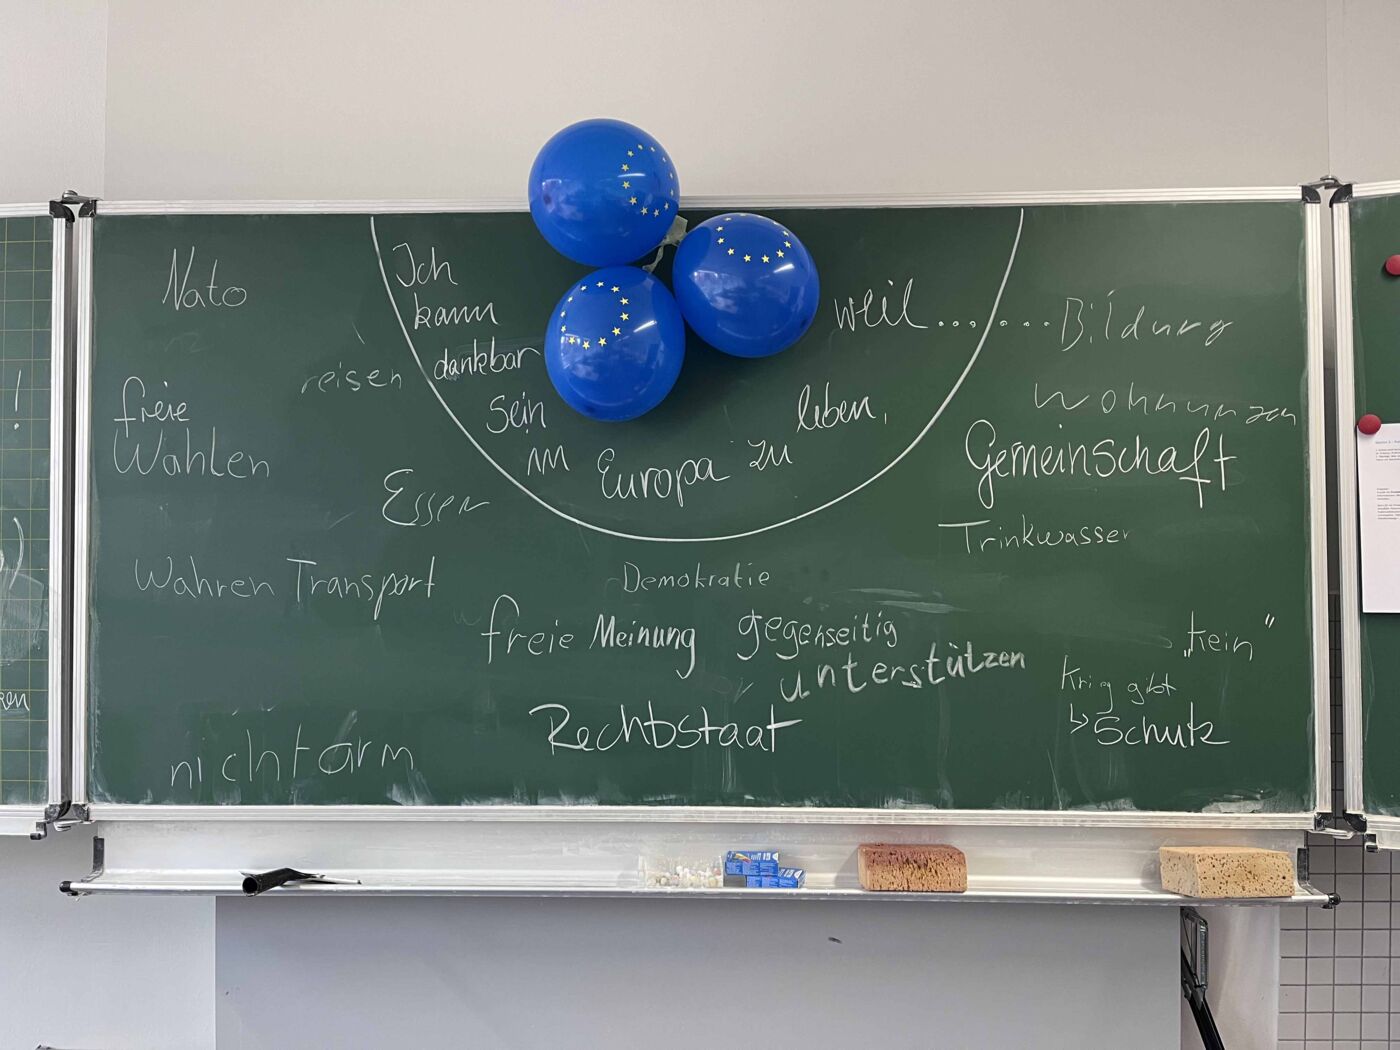 Ich
kann
dankbar
sein
im Europa zu leben,
weil.......
Nato
reisen
freie
Wahlen
Essen
Wahren Transport
nicht arm
Demokratie
freie Meinung
gegenseitig
unterstützen
Rechtsstaat
Bildung
Wohnungen
Gemeinschaft
Trinkwasser
„kein"
Krieg gibt
↳ Schutz
!
ken